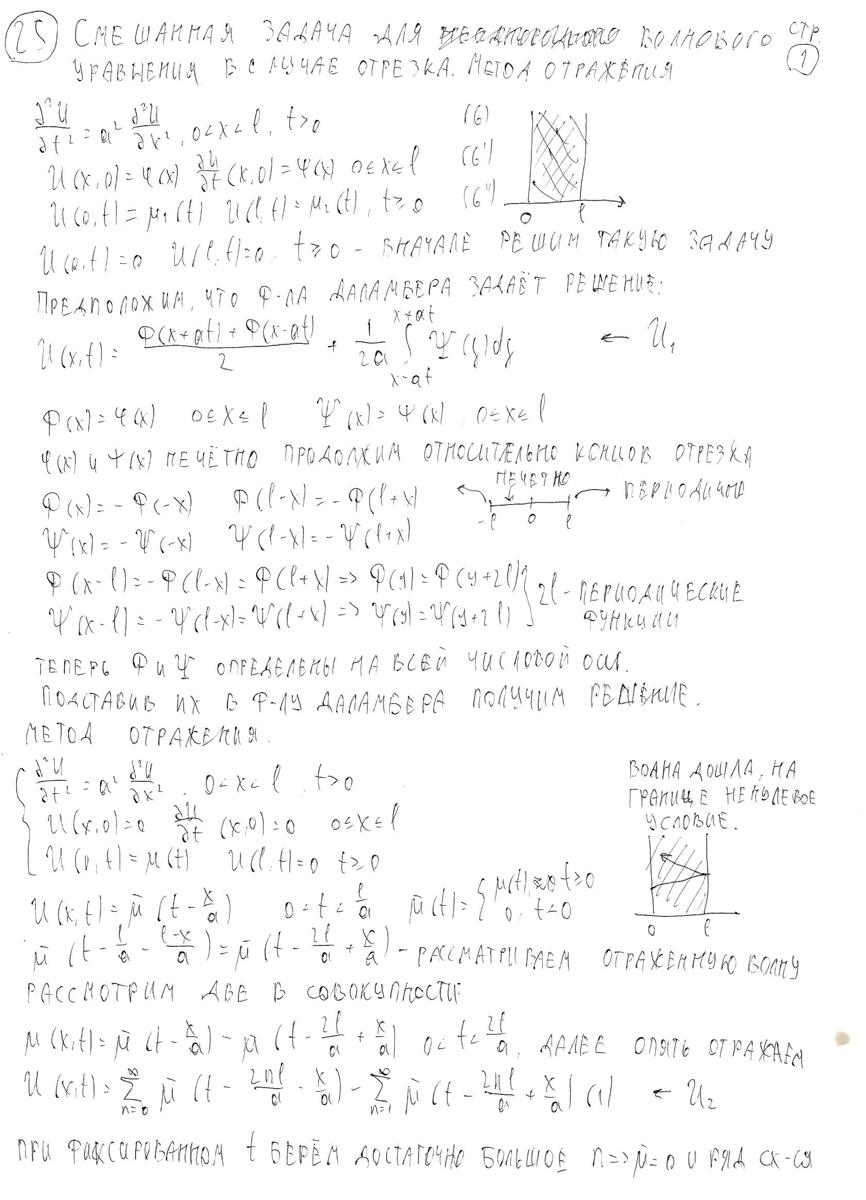 25 СМЕШАННАЯ ЗАДАЧА ДЛЯ ВОЛНОВОГО СТР. 1
УРАВНЕНИЯ В СЛУЧАЕ ОТРЕЗКА. МЕТОД ОТРАЖЕНИЯ
∂²U/∂t² = a² ∂²U/∂x², 0<x<l, t>0 (6)
U(x,0)=φ(x) ∂u/∂t(x,0)=ψ(x) 0≤x≤l (6')
U(0,t)=μ₁(t) U(l,t)=μ₂(t), t≥0 (6'')
0 l
U(0,t)=0 U(l,t)=0, t≥0 - ВНАЧАЛЕ РЕШИМ ТАКУЮ ЗАДАЧУ
ПРЕДПОЛОЖИМ, ЧТО Ф-ЛА ДАЛАМБЕРА ЗАДАЁТ РЕШЕНИЕ:
U(x,t) = (Φ(x+at)+Φ(x-at))/2 + 1/2a ∫_{x-at}^{x+at} Ψ(ξ)dξ ← U₁
Φ(x)=φ(x) 0≤x≤l Ψ(x)=ψ(x), 0≤x≤l
φ(x) и ψ(x) НЕЧЁТНО ПРОДОЛЖИМ ОТНОСИТЕЛЬНО КОНЦОВ ОТРЕЗКА
НЕЧЕТНО
Φ(x)=-Φ(-x) Φ(l-x)=-Φ(l+x) ПЕРИОДИЧНО
-l 0 l
Ψ(x)=-Ψ(-x) Ψ(l-x)=-Ψ(l+x)
Φ(x-l)=-Φ(l-x)=Φ(l+x) => Φ(y)=Φ(y+2l) } 2l - ПЕРИОДИЧЕСКИЕ
Ψ(x-l)=-Ψ(l-x)=Ψ(l+x) => Ψ(y)=Ψ(y+2l) ФУНКЦИИ
ТЕПЕРЬ Φ и Ψ ОПРЕДЕЛЕНЫ НА ВСЕЙ ЧИСЛОВОЙ ОСИ.
ПОДСТАВИВ ИХ В Ф-ЛУ ДАЛАМБЕРА ПОЛУЧИМ РЕШЕНИЕ.
МЕТОД ОТРАЖЕНИЯ.
{ ∂²U/∂t² = a² ∂²U/∂x², 0<x<l, t>0
U(x,0)=0 ∂U/∂t (x,0)=0 0≤x≤l
U(0,t)=μ(t) U(l,t)=0 t≥0
ВОЛНА ДОШЛА, НА
ГРАНИЦЕ НЕНУЛЕВОЕ
УСЛОВИЕ.
0 l
U(x,t)=μ̄(t-x/a) 0<t<l/a μ̄(t)={ μ(t), t≥0
0, t<0
μ̄(t - l/a - (l-x)/a) = μ̄(t - 2l/a + x/a) - РАССМАТРИВАЕМ ОТРАЖЕННУЮ ВОЛНУ
РАССМОТРИМ ДВЕ В СОВОКУПНОСТИ
μ(x,t)=μ̄(t-x/a) - μ̄(t - 2l/a + x/a) 0<t<2l/a, ДАЛЕЕ ОПЯТЬ ОТРАЖАЕМ
U(x,t)=∑_{n=0}^{∞} μ̄(t - 2nl/a - x/a) - ∑_{n=1}^{∞} μ̄(t - 2nl/a + x/a) (1) ← U₂
ПРИ ФИКСИРОВАННОМ t БЕРЁМ ДОСТАТОЧНО БОЛЬШОЕ n => μ̄=0 И РЯД СХ-СЯ